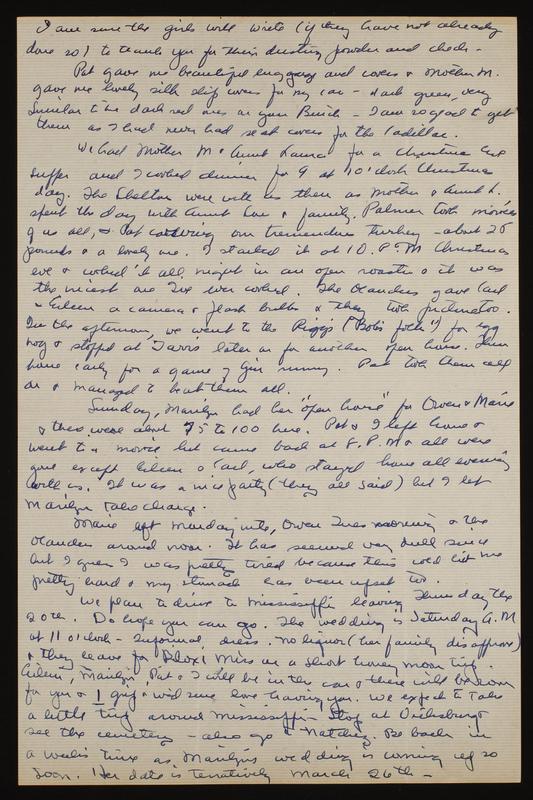 I am sure the girls will write (if they have not already
done so) to thank you for their dusting powder and checks -
Pat gave me beautiful luggage and covers & Mother M.
gave me lovely silk slip covers for my car - dark green, very
similar to the dark red ones in your Buick - I am so glad to get
them as I had never had seat covers for the Cadillac.
We had Mother M & Aunt Laura for a Christmas Eve
supper and I cooked dinner for 9 at 10 o'clock Christmas
day. The Sheltons were with us then as Mother & Aunt L.
spent the day with Aunt & family. Palmer took movies
of us all, & Pat carving our tremendous turkey - about 25
pounds & a lovely one. I started it at 10. P.M. Christmas
eve & cooked it all night in an open roaster & it was
the nicest one I've ever cooked. The gave Carl
& Eileen a camera & flash bulbs & they took pictures too.
In the afternoon, we went to the Riggs ("Bob's folks") for egg
nog & stopped at later on for another open house. Then
home early for a game of gin rummy. Pat took them all
on & managed to beat them all.
Sunday, Marilyn had her "open house" for Owen & Marie
& there were about 75 to 100 here. Pat & I left home &
went to a movie but came back at 8. P.M & all were
gone except Eileen & Carl, who stayed here all evening
with us. It was a nice party (they all said) but I let
Marilyn take charge.
Marie left Monday nite, Owen Tues morning & the
around noon. It has seemed very dull since
but I guess I was pretty tired because this cold hit me
pretty hard & my stomach has been upset too.
We plan to drive to Mississippi leaving Thursday the
20th. Do hope you can go. The wedding is Saturday A.M
at 11 o'clock - Informal dress. No liquor (her family disapproves)
& they leave for Biloxi Miss on a short honey moon trip.
Eileen, Marilyn, Pat & I will be in the car & there will be room
for you & 1 girl & we'd sure love having you. We expect to take
a little trip around Mississippi - Stop at Vicksburg &
see the cemetery - also go to Natchez. Be back in
a weeks time as Marilyn's wedding is coming up so
soon. Her date is tentatively March 26th -